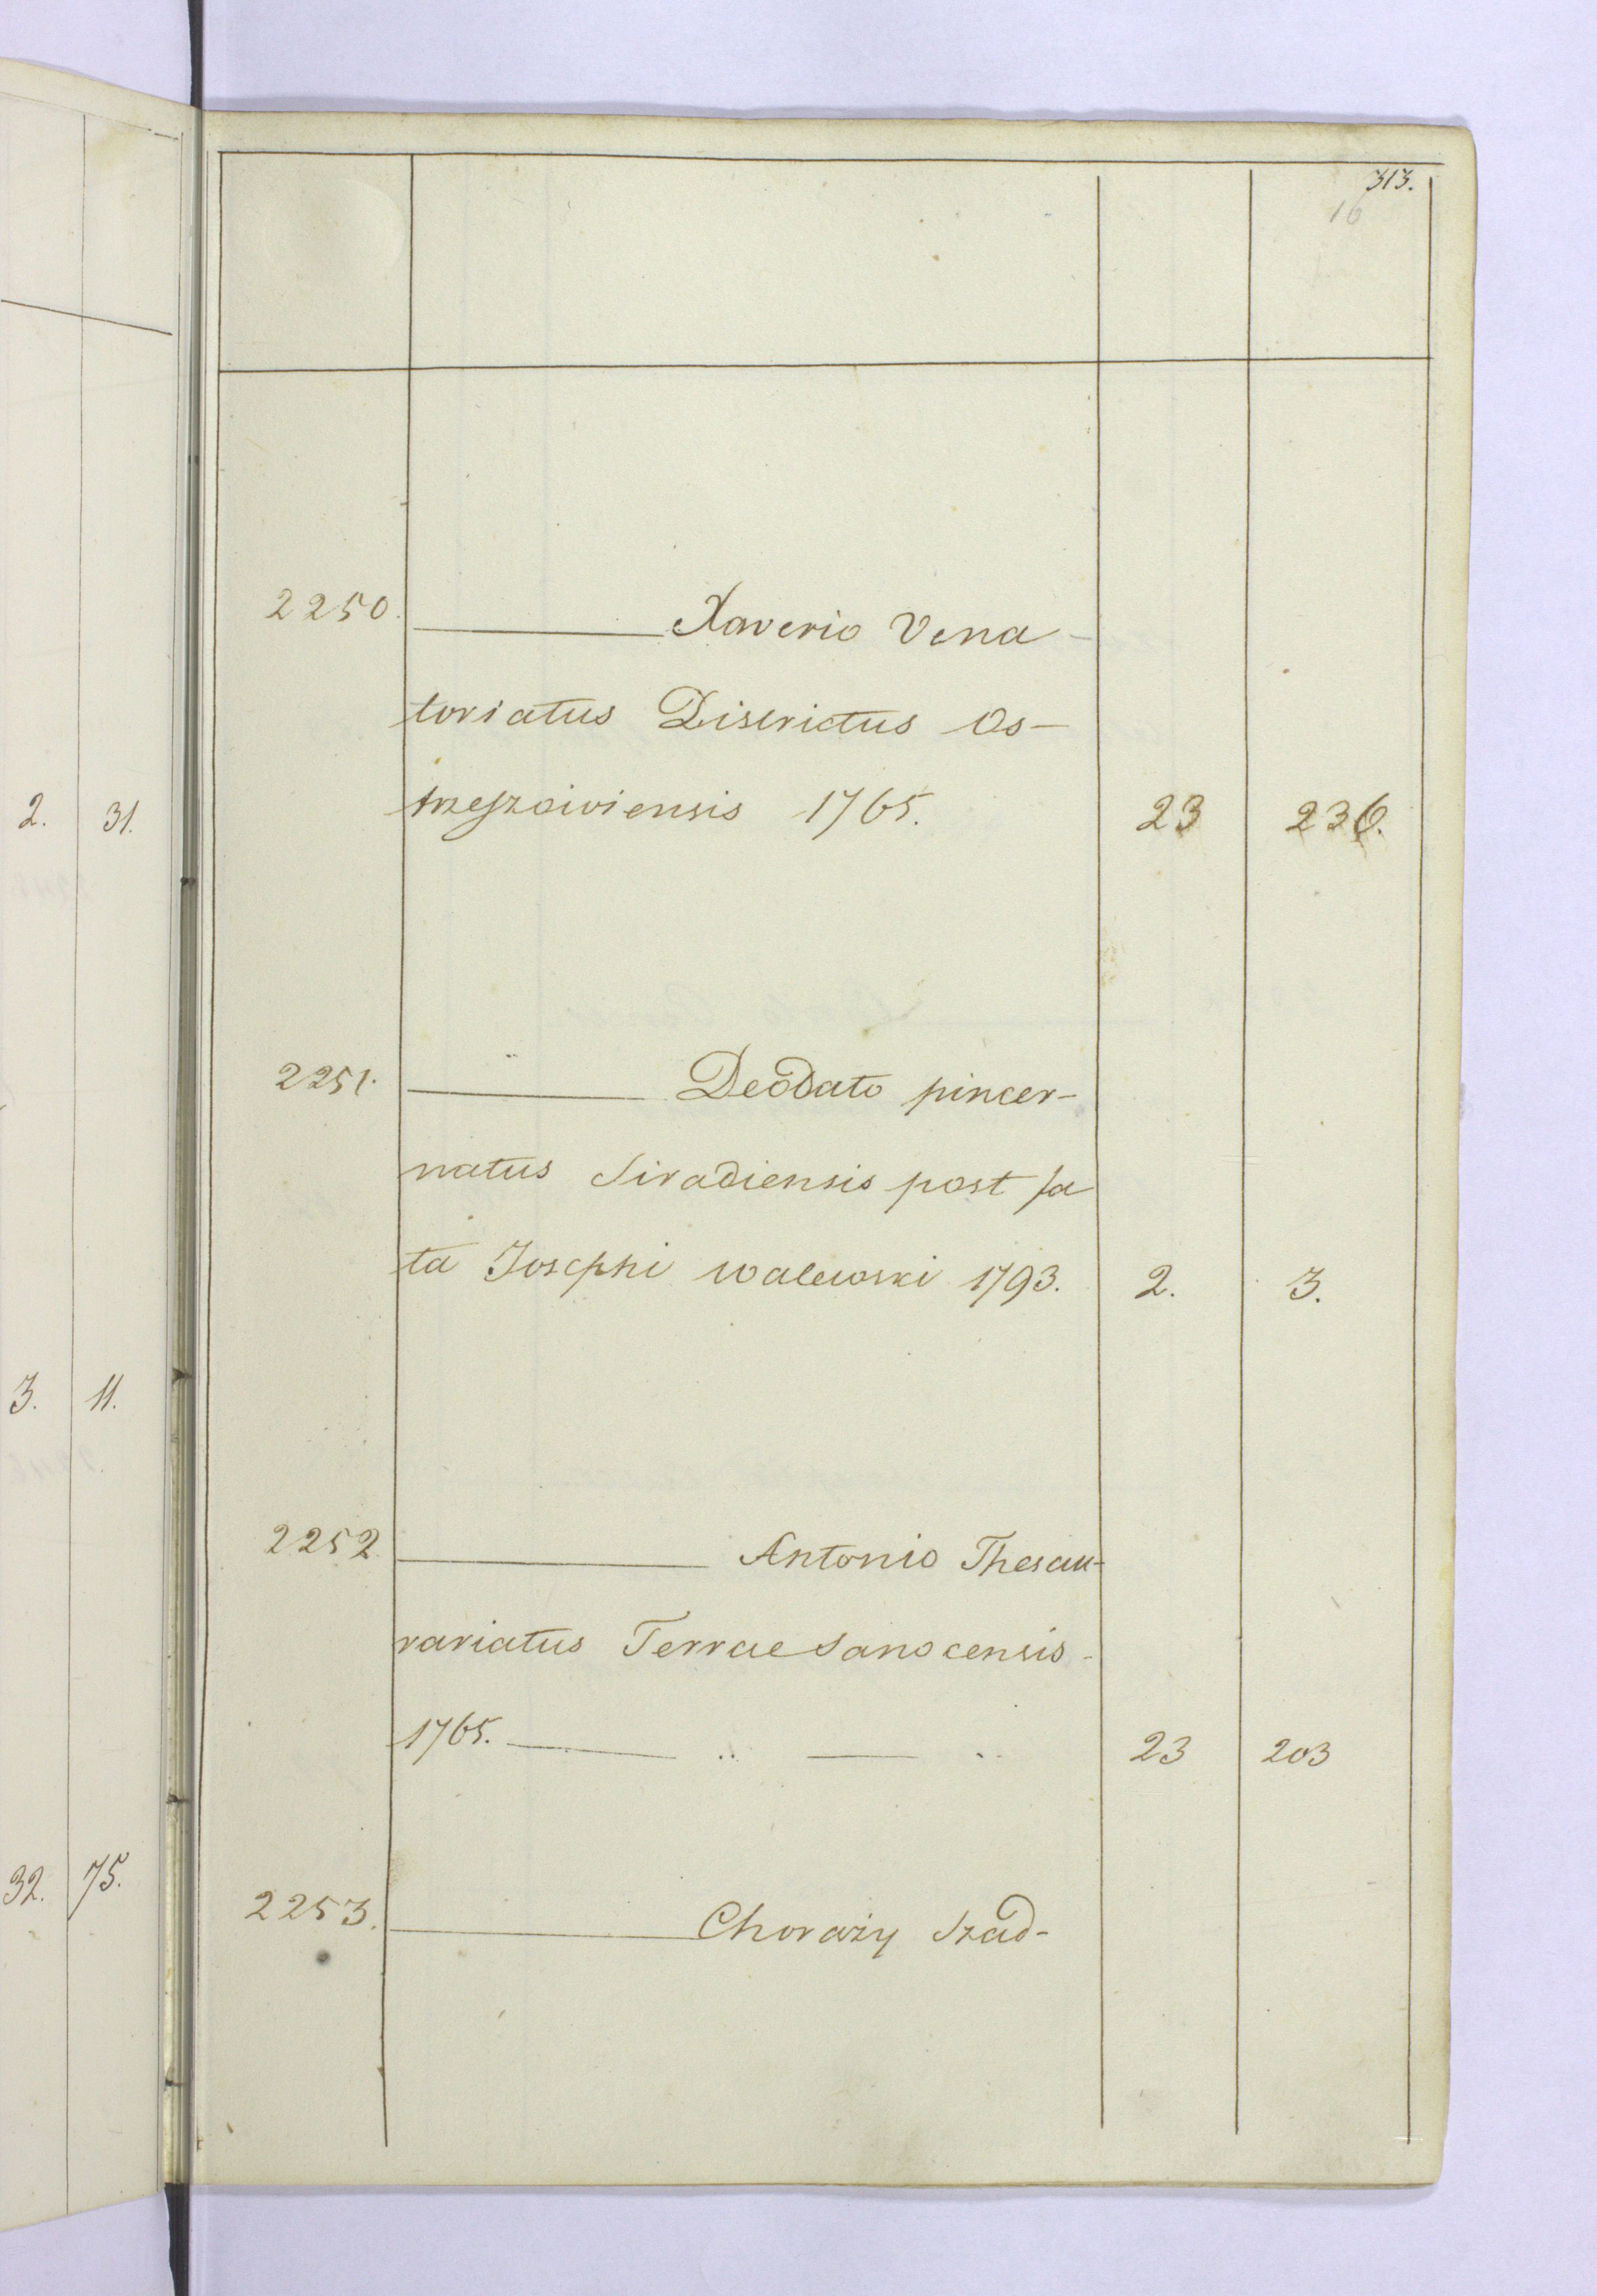 313.
16
2250. ——— Xaverio Vena-
toriatus Districtus Os-
trzeszoiviensis 1765. 23 236.
2. 31.
2251. ——— Deodato pincer-
natus Siradiensis post fa
ta Josephi Walewski 1793. 2. 3.
3. 11.
2252 ——— Antonio Thesau-
rariatus Terrae Sanocensis -
1765. ——— .. ——— .. 23 203
32. 75.
2253. ——— Chorąży Szad-